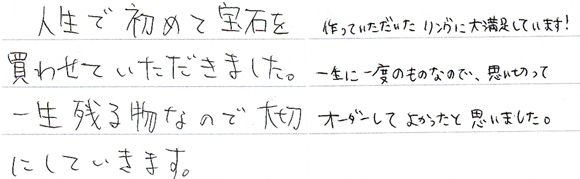 人生で初めて宝石を
買わせていただきました。
一生残る物なので大切
にしていきます。
作っていただいたリングに大満足しています!
一生に一度のものなので、思い切って
オーダーしてよかったと思いました。